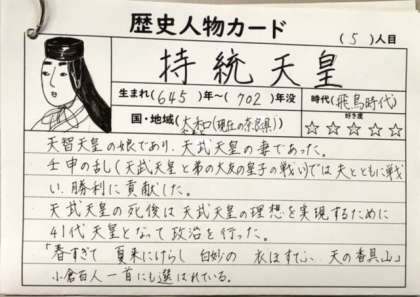 歴史人物カード
(5)人目
持統天皇
生まれ(645)年〜(702)年没
時代(飛鳥時代)
国・地域(大和(現在の奈良県))
好き度
☆☆☆☆☆
天智天皇の娘であり、天武天皇の妻であった。
壬申の乱(天武天皇と弟の大友の皇子の戦い)では夫とともに戦
い、勝利に貢献した。
天武天皇の死後は天武天皇の理想を実現するために
41代天皇となって政治を行った。
「春すぎて 夏来にけらし 白妙の 衣ほすてふ 天の香具山」
小倉百人一首にも選ばれている。